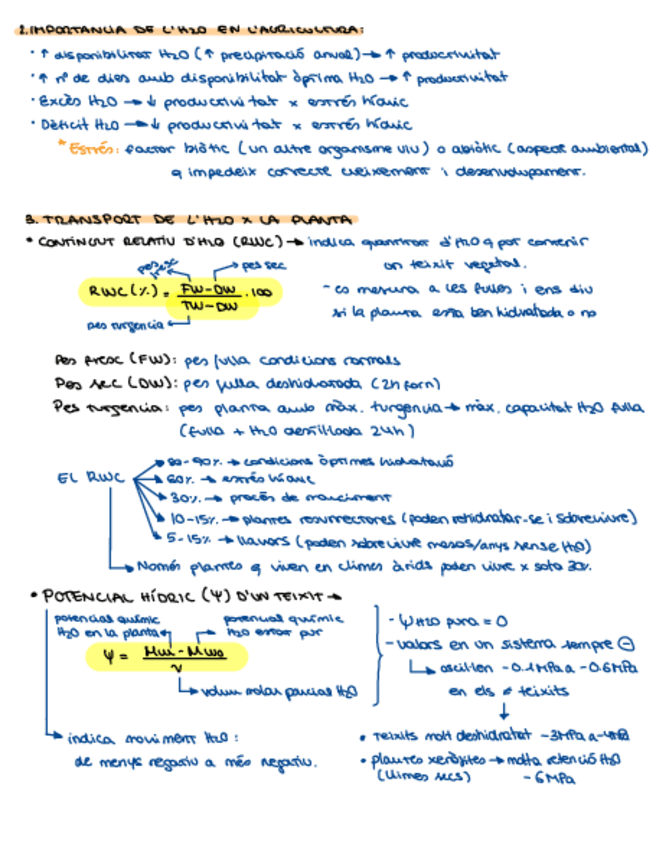 2. IMPORTANCIA DE L'H2O EN L'AGRICULTURA:
· ↑ disponibilitat H2O (↑ precipitació anual) → ↑ productivitat
· ↑ nº de dies amb disponibilitat òptima H2O → ↑ productivitat
· Excès H2O → ↓ productivitat x estrés hídric
· Dèficit H2O → ↓ productivitat x estrés hídric
* Estrés: factor biòtic (un altre organisme viu) o abiòtic (aspecte ambiental)
q impedeix correcte creixement i desenvolupament.
3. TRANSPORT DE L'H2O x LA PLANTA
• CONTINGUT RELATIU D'H2O (RWC) → indica quantitat d'H2O q pot contenir
un teixit vegetal.
pes fresc
pes sec
RWC (%) = FW-DW / TW-DW · 100
pes turgencia
- es mesura a les fulles i ens diu
si la planta esta ben hidratada o no
Pes fresc (FW): pes fulla condicions normals
Pes sec (DW): pes fulla deshidratada (2h forn)
Pes turgencia: pes planta amb màx. turgencia → màx. capacitat H2O fulla
(fulla + H2O destil·lada 24h)
EL RWC
80-90% → condicions òptimes hidratació
60% → estrés hídric
30% → procés de marciment
10-15% → plantes resurrectores (poden rehidratar-se i sobreviure)
5-15% → llavors (poden sobreviure mesos/anys sense H2O)
Només plantes q viuen en climes àrids poden viure x sota 30%
• POTENCIAL HÍDRIC (Ψ) D'UN TEIXIT →
potencial químic
H2O en la planta
potencial químic
H2O estat pur
Ψ = Mw - Mwo / V
volum molar parcial H2O
- Ψ H2O pura = 0
- valors en un sistema sempre ⊖
oscil·len -0.1MPa a -0.6MPa
en els ≠ teixits
indica moviment H2O:
de menys negatiu a més negatiu.
• Teixits molt deshidratat -3MPa a -4MPa
• plantes xeròfites → molta retenció H2O
(climes secs) -6MPa